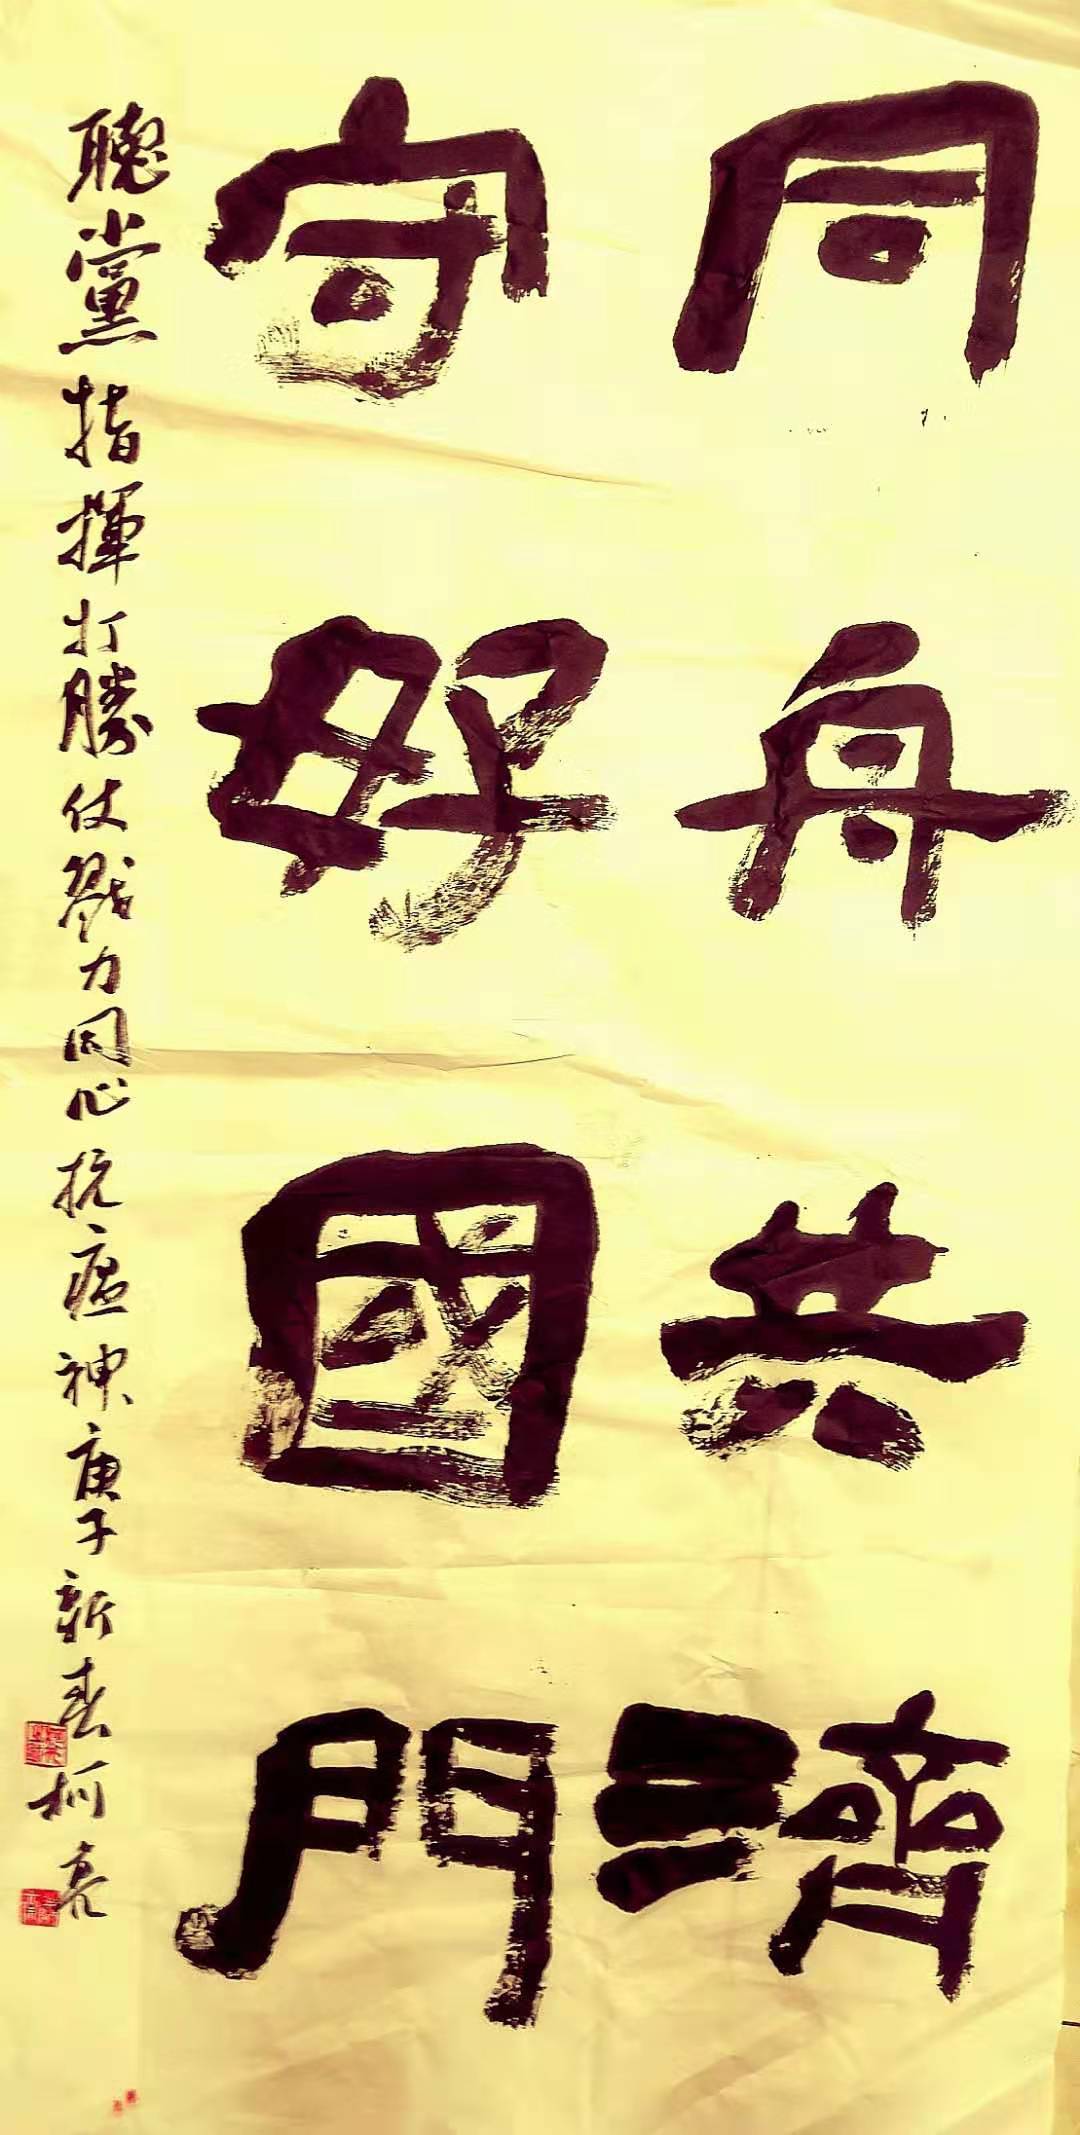 同舟共濟
守好國門
聽黨指揮打勝仗戮力同心抗瘟神庚子新春柯亮